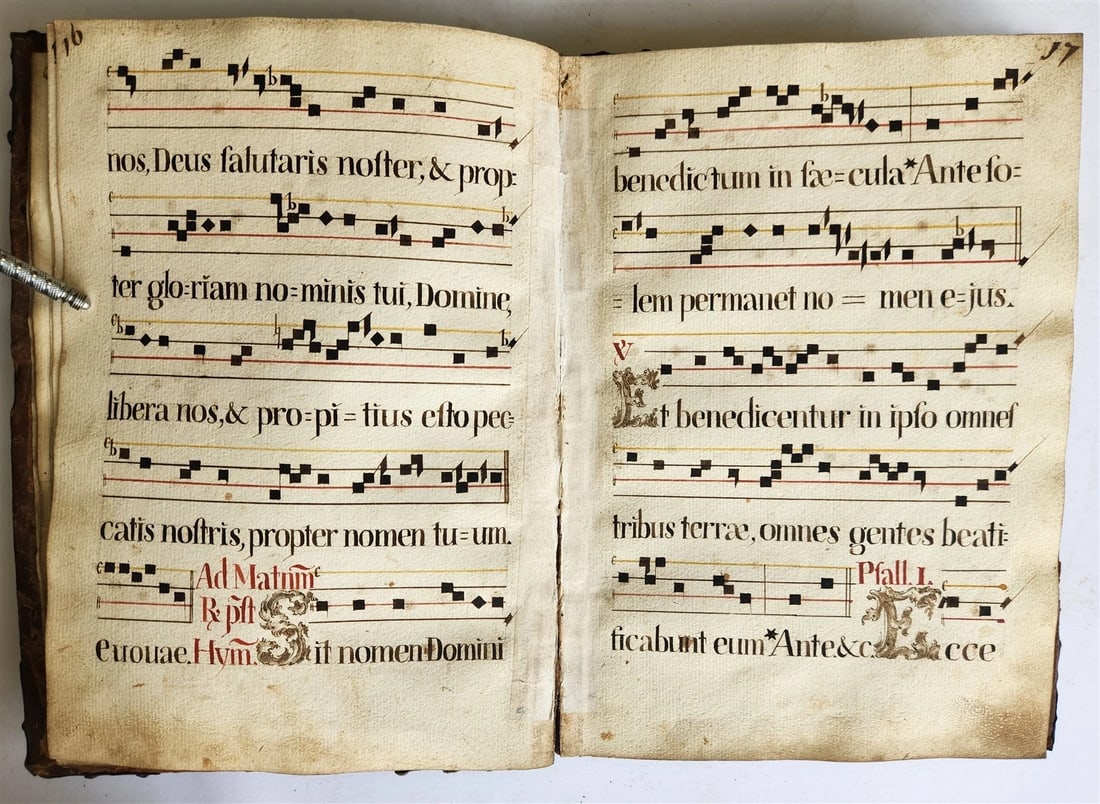 116
nos, Deus ſalutaris noſter, & prop=
ter glo=riam no=minis tui, Domine,
libera nos, & pro=pi=tius eſto pec=
catis noſtris, propter nomen tu=um.
euouae. Ad Matũm
R̷ pſt
Hym̃. Sit nomen Domini
17
benedictum in ſæ=cula*Ante ſo=
=lem permanet no = men e=jus.
℣
Et benedicentur in ipſo omneſ
tribus terræ, omnes gentes beati=
Pſall. I.
ficabunt eum*Ante&c. Ecce